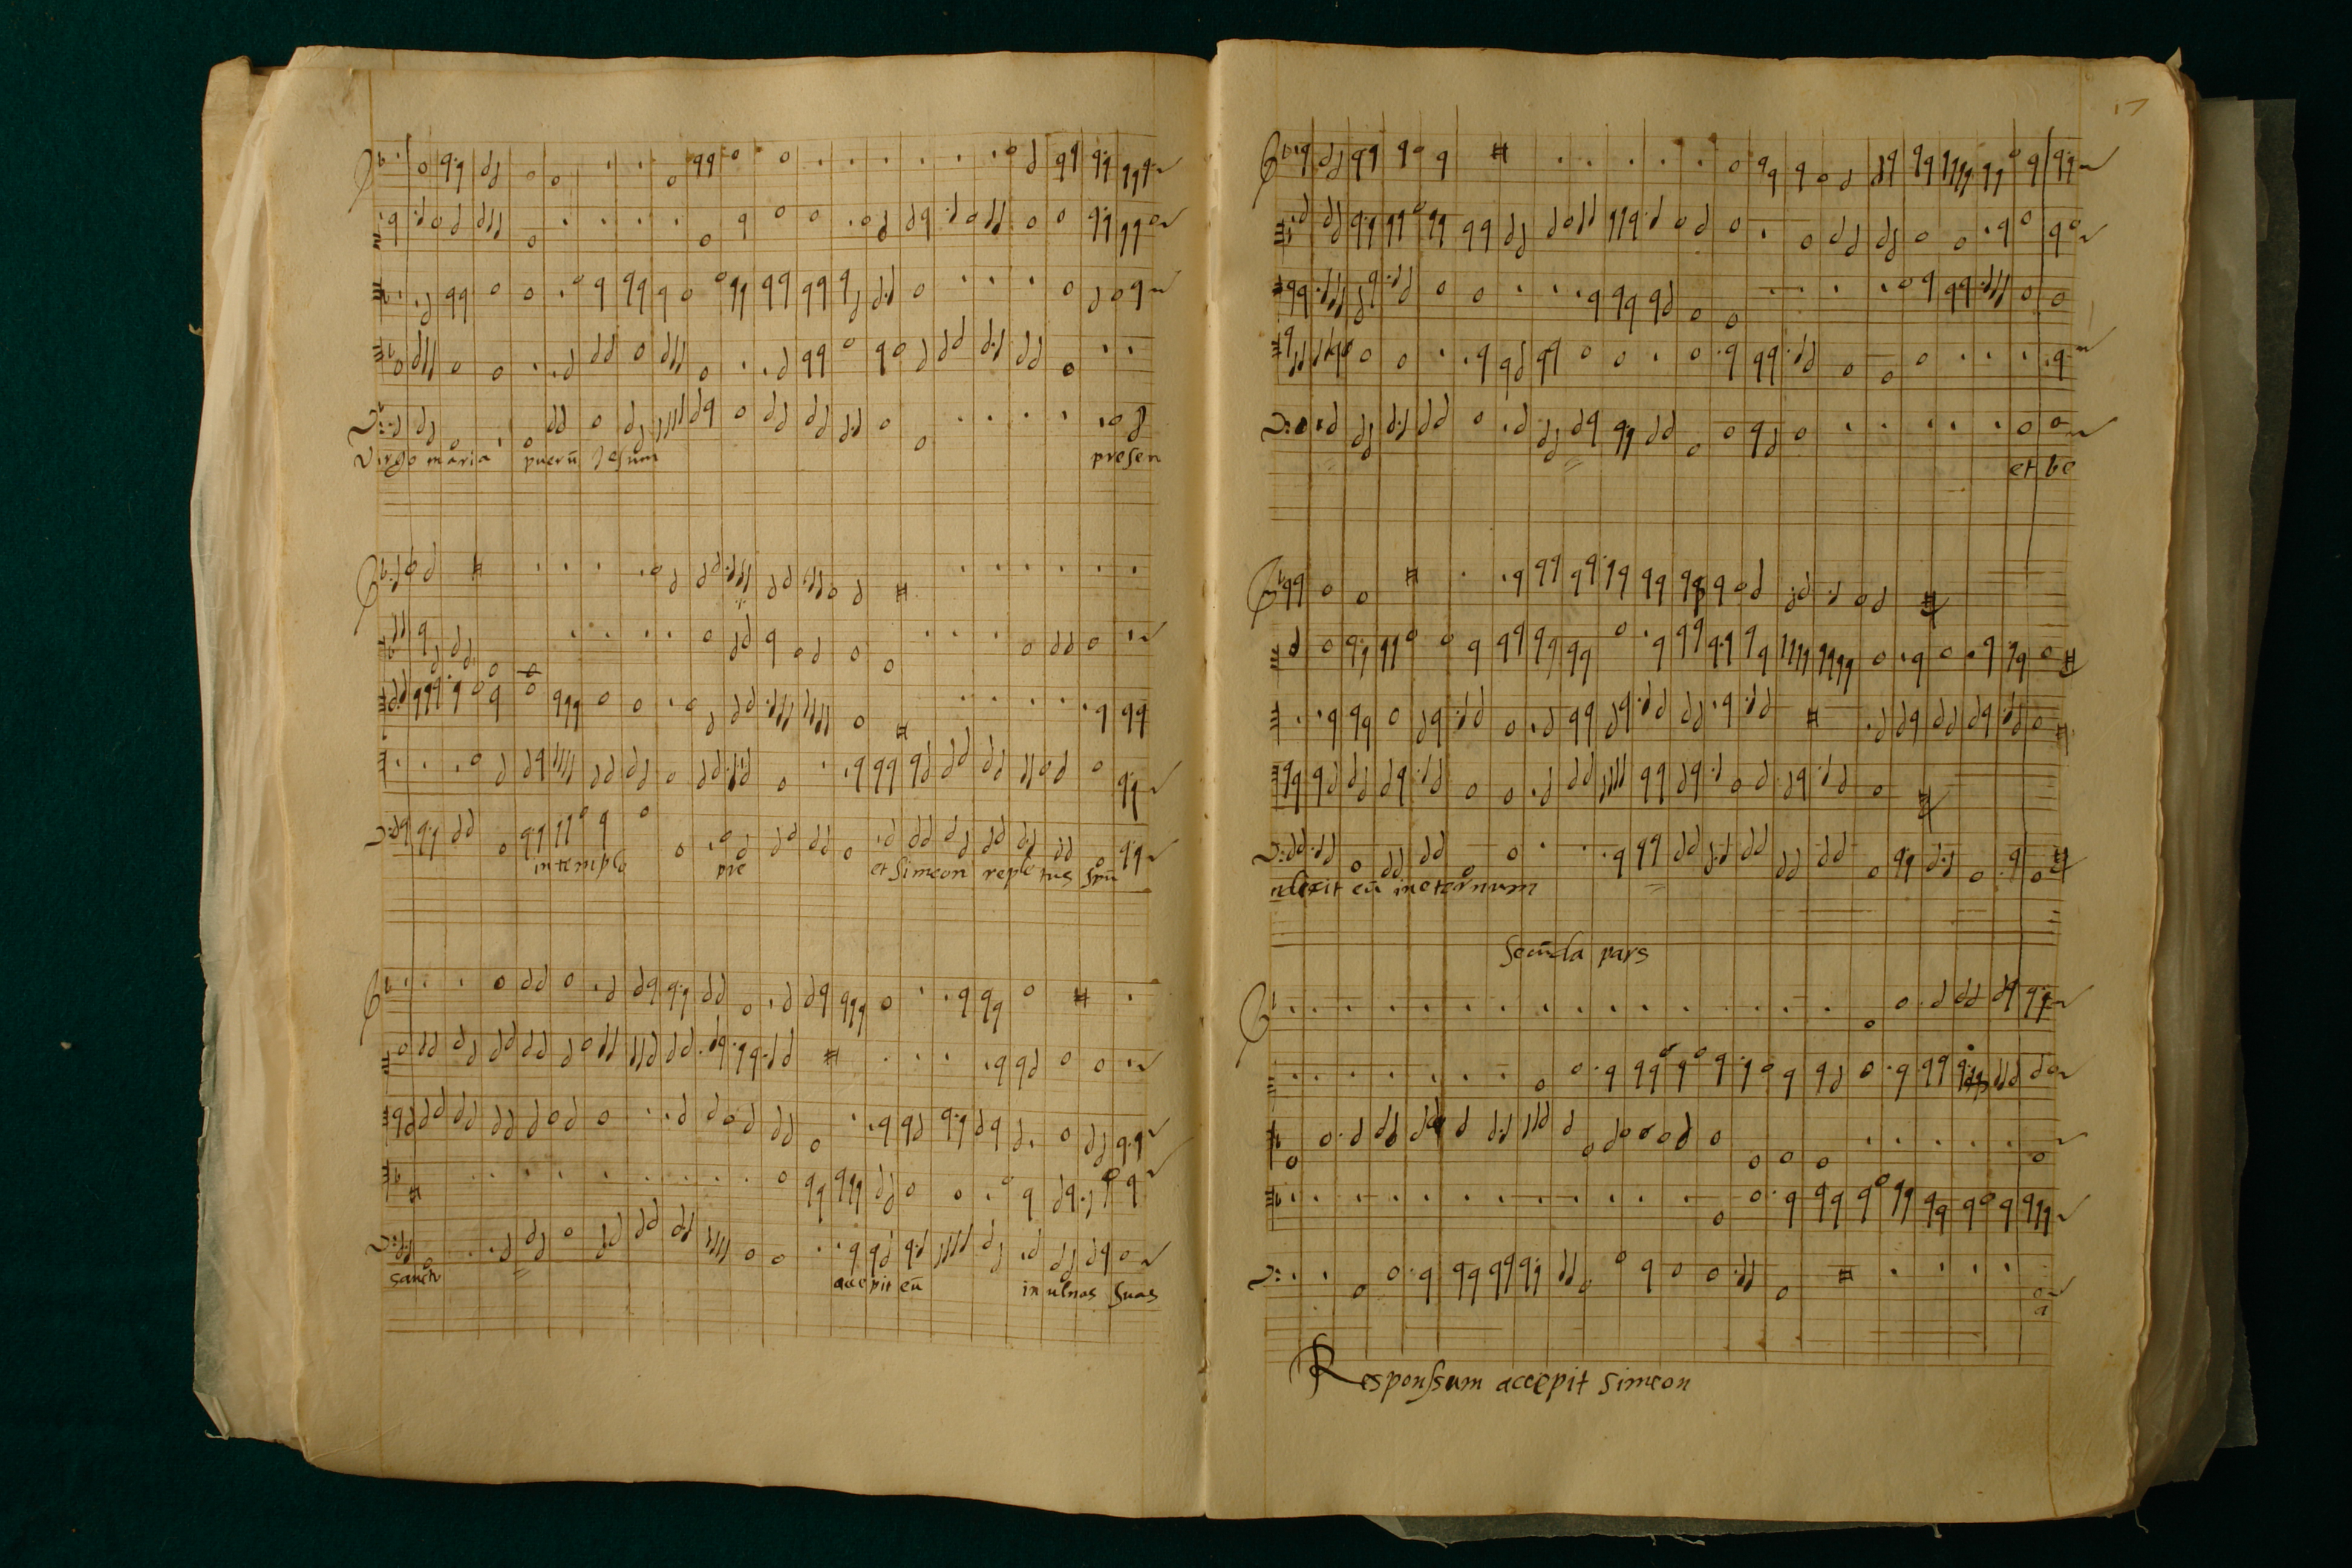 Virgo maria puerū Jesum presen
in templo pre et Simeon repletus spū
sancto accepit eū in ulnas suas
17
et be
nedixit eū in eternum
Secūda pars
a
Responssum accepit Simeon